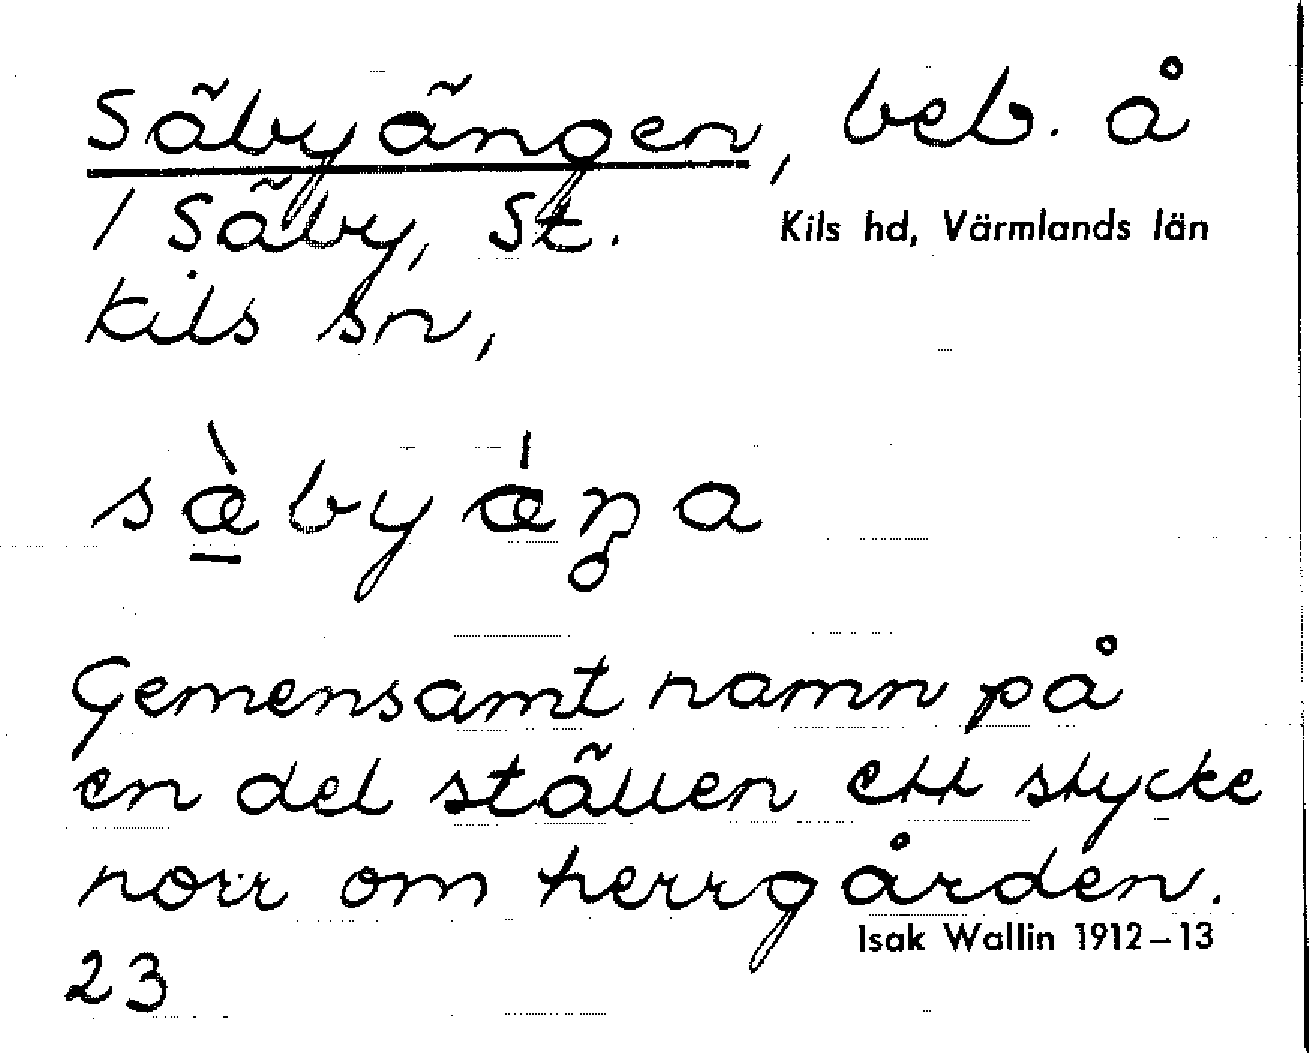 Säbyängen, beb. å
1 Säby, St.
Kils hd, Värmlands län
Kils sn,
sæ̀byǽŋa
Gemensamt namn på
en del ställen ett stycke
norr om herrgården.
Isak Wallin 1912–13
23